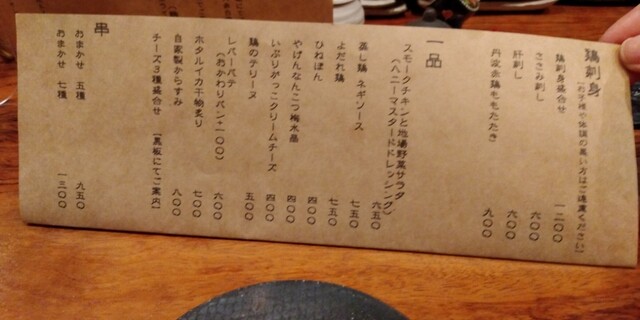 鶏刺身
(お子様や体調の悪い方はご遠慮ください)
鶏刺身盛合せ 一二〇〇
ささみ刺し 六〇〇
肝刺し 六〇〇
丹波赤鶏ももたたき 九〇〇
一品
スモークチキンと地場野菜サラダ
(ハニーマスタードドレッシング) 六五〇
蒸し鶏 ネギソース 七五〇
よだれ鶏 七五〇
ひねぽん 四〇〇
やげんなんこつ梅水晶 四〇〇
いぶりがっこクリームチーズ 四〇〇
鶏のテリーヌ 五〇〇
レバーパテ 六〇〇
(おかわりパン+一〇〇)
ホタルイカ干物炙り 七〇〇
自家製からすみ 八〇〇
チーズ3種盛合せ [黒板にてご案内]
串
おまかせ 五種 九五〇
おまかせ 七種 一三〇〇